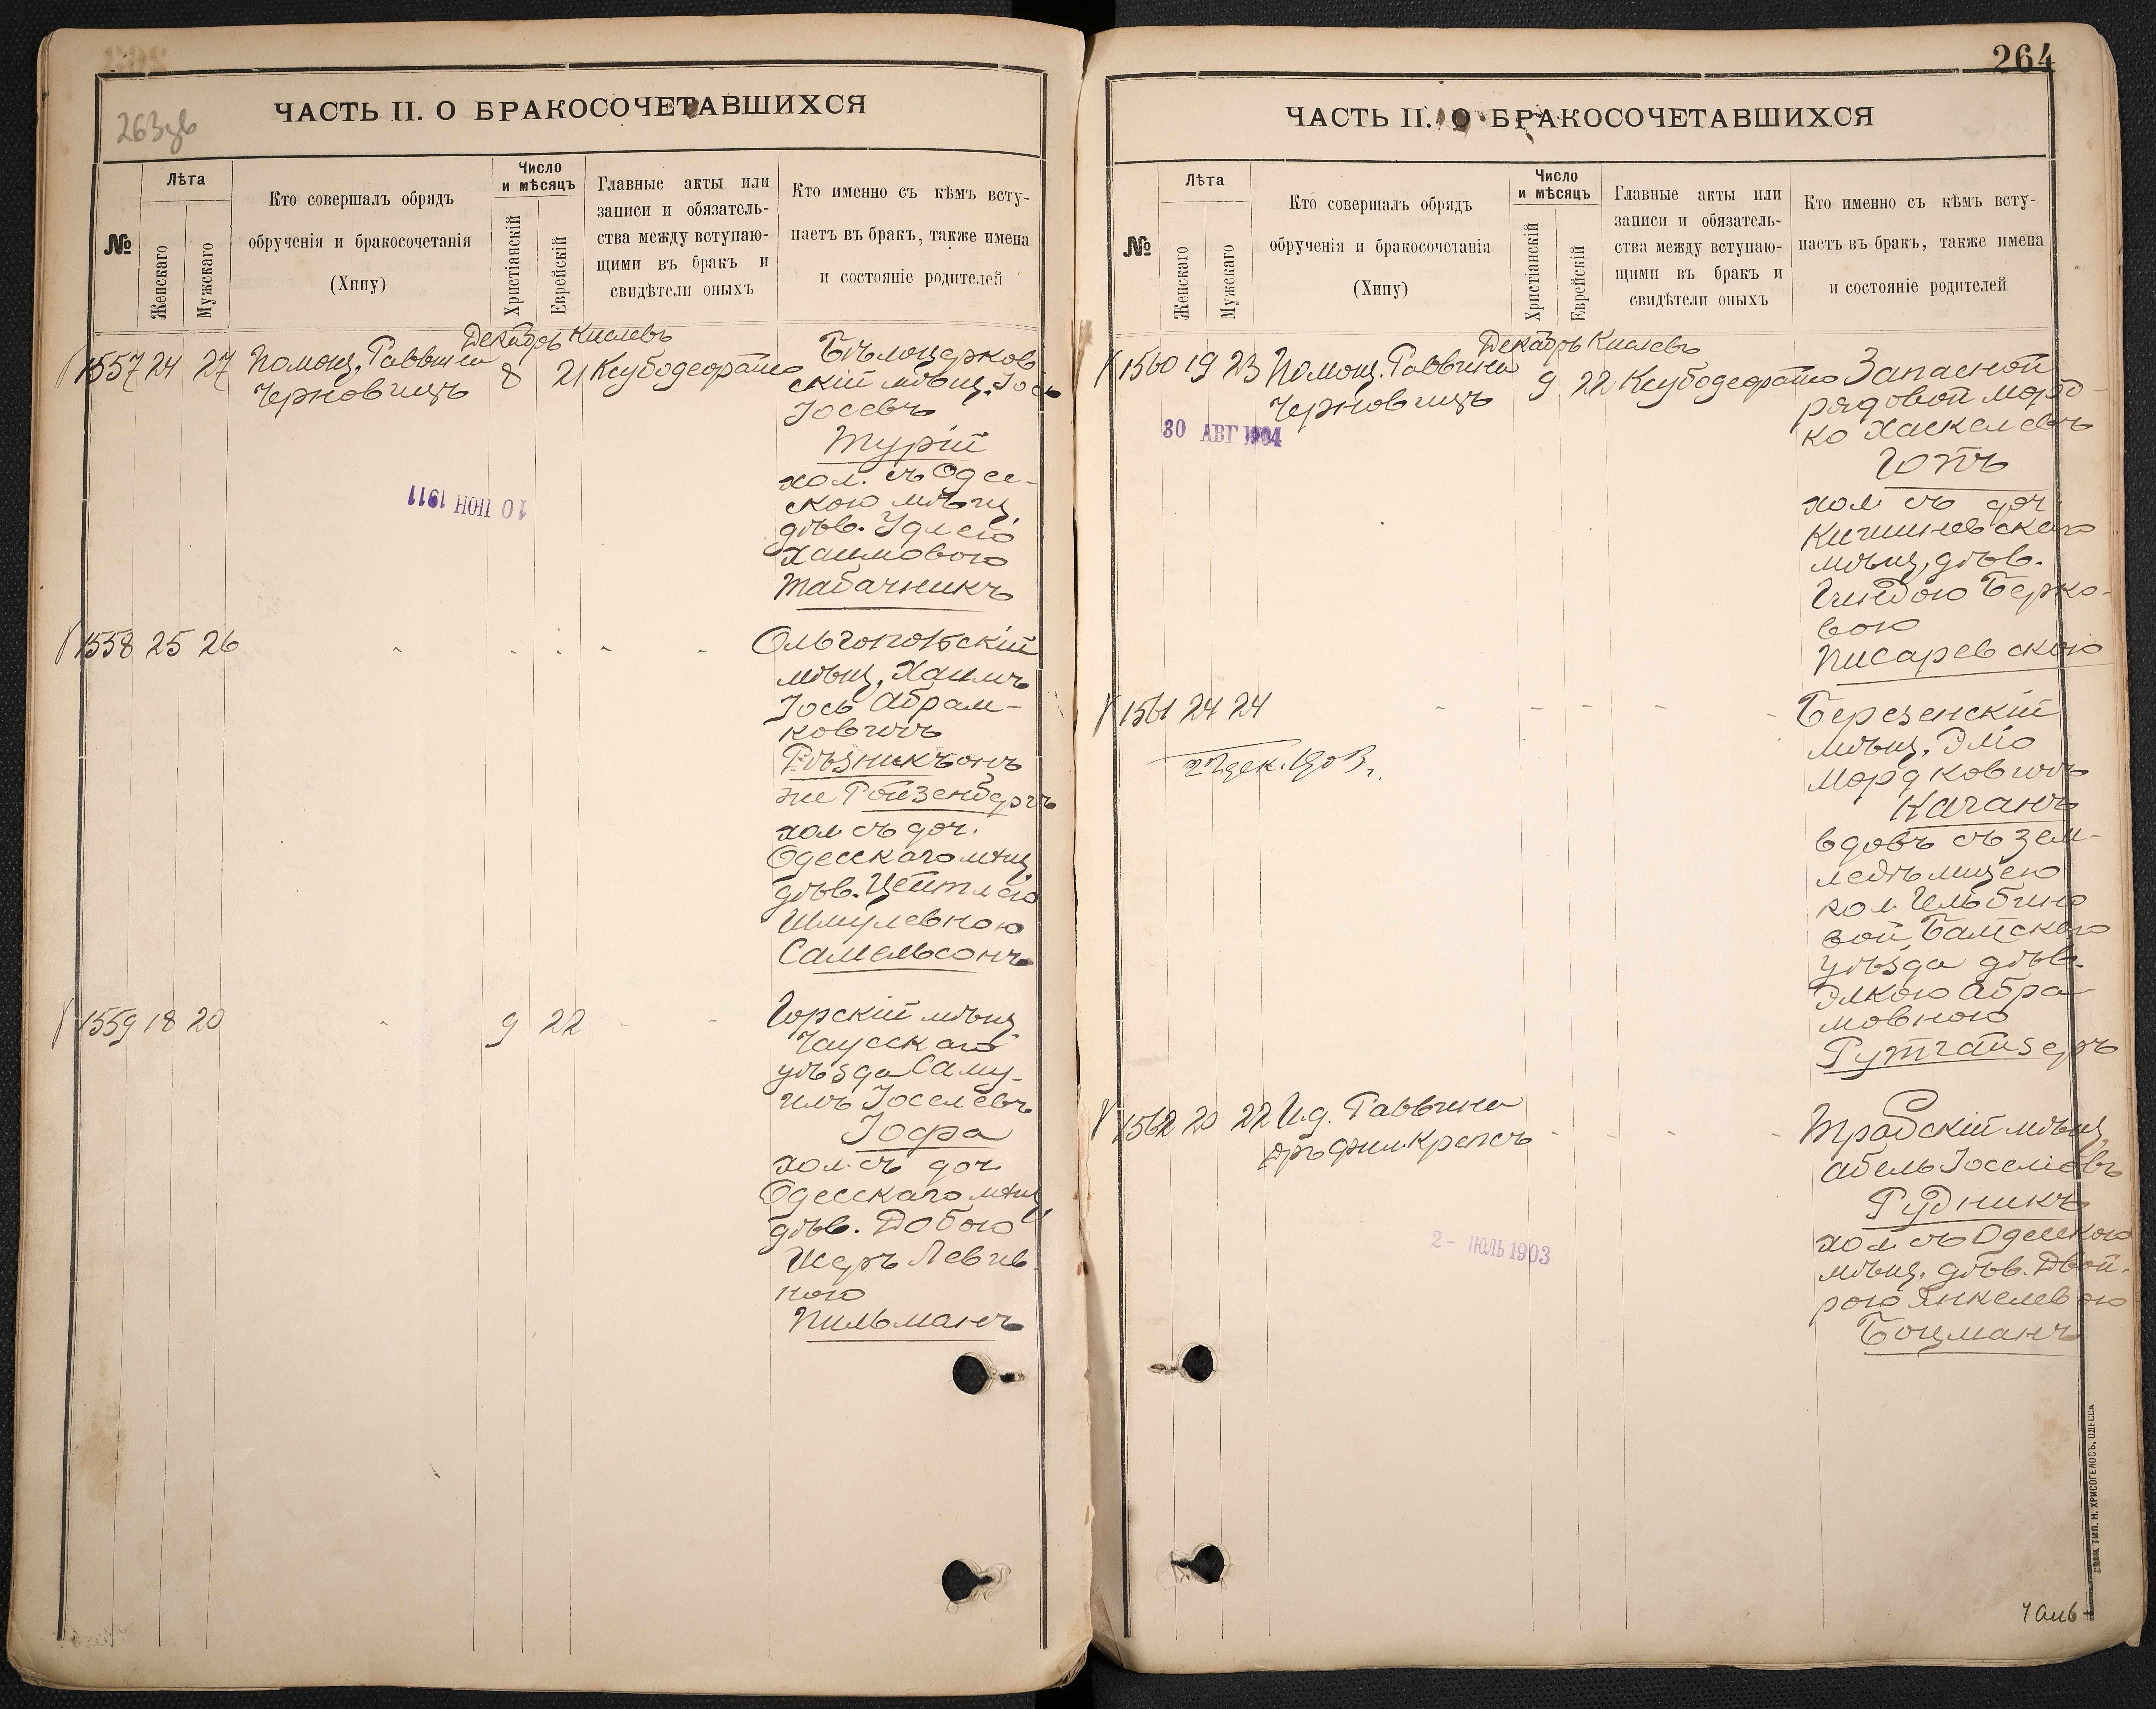 263зв
ЧАСТЬ II. О БРАКОСОЧЕТАВШИХСЯ
№
Лѣта
Женскаго
Мужскаго
Кто совершалъ обрядъ
обрученія и бракосочетанія
(Хипу)
Число
и мѣсяцъ
Христіанскій
Еврейскій
Главные акты или
записи и обязатель-
ства между вступаю-
щими въ бракъ и
свидѣтели оныхъ
Кто именно съ кѣмъ всту-
паетъ въ бракъ, также имена
и состояніе родителей
Декабрь Кислевъ
1557 24 27 Помощ. Раввина 8 21
Черновицъ
Бѣлоцерков
скій мѣщ. Іось
Іосевъ
Турій
хол. съ Одес-
скою мѣщ.
дѣв. Удлею
Хаимовою
Табачникъ
10 ІЮН 1911
1558 25 26
Ольгопольскій
мѣщ. Хаимъ
Іось Абрам-
ковичъ
Рѣзникъ онъ
же Ройзенбергъ
хол. съ доч.
Одесскаго мѣщ.
дѣв. Цейтлею
Шмулевною
Самельсонъ
1559 18 20 9 22
Горскій мѣщ.
Чаусскаго
уѣзда Саму-
илъ Іоселевъ
Іофа
хол. съ доч.
Одесскаго мѣщ.
дѣв. Добою
Шеръ Левив
ною
Пильманъ
264
ЧАСТЬ II. О БРАКОСОЧЕТАВШИХСЯ
№
Лѣта
Женскаго
Мужскаго
Кто совершалъ обрядъ
обрученія и бракосочетанія
(Хипу)
Число
и мѣсяцъ
Христіанскій
Еврейскій
Главные акты или
записи и обязатель-
ства между вступаю-
щими въ бракъ и
свидѣтели оныхъ
Кто именно съ кѣмъ всту-
паетъ въ бракъ, также имена
и состояніе родителей
Декабрь Кислевъ
1560 19 23 Помощ. Раввина 9 22
Черновицъ
30 АВГ 1904
Запасной
рядовой Мордко
ко Хаскелевъ
Готъ
хол. съ доч.
Кишиневскаго
мѣщ. дѣв.
Гиндою Берко-
вою
Писаревскою
1561 24 24
27 дек. 1903 г.
Березенскій
мѣщ. Эліо
Мордковичъ
Каганъ
вдовъ съ зем-
ледѣлицею
кол.
вой, Балтскаго
уѣзда дѣв.
Элкою Абра
мовною
Рутгайзеръ
1562 20 22 И.д. Раввина
д-ръ фил. Крепсъ
2 - ІЮЛЬ 1903
Трабскій мѣщ.
Абель Іоселіовъ
Рудникъ
хол. съ Одесскою
мѣщ. дѣв. Двой-
рою Янкелевою
Боцманъ
ТИП. Н. ХРИСОГЕЛОСЪ, ОДЕССА